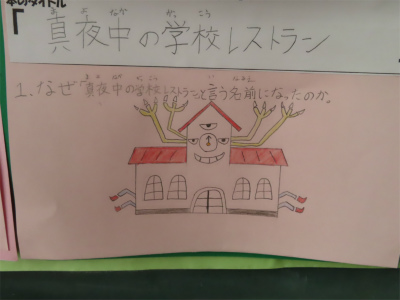 本のタイトル
「真夜中の学校レストラン
1.なぜ真夜中の学校レストランと言う名前になったのか。